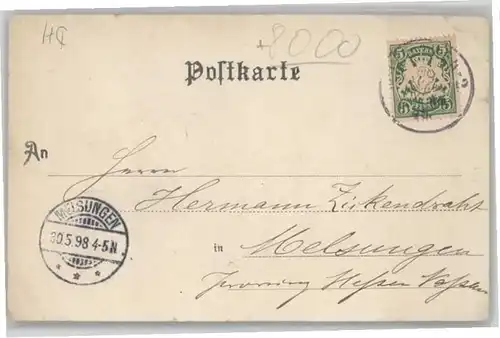 HC
+8000
Postkarte
BAYERN
5 5
An
Herrn
Hermann Zickendraht
MELSUNGEN
30.5.98 4-5N
in Melsungen
Provinz Hessen Nassau